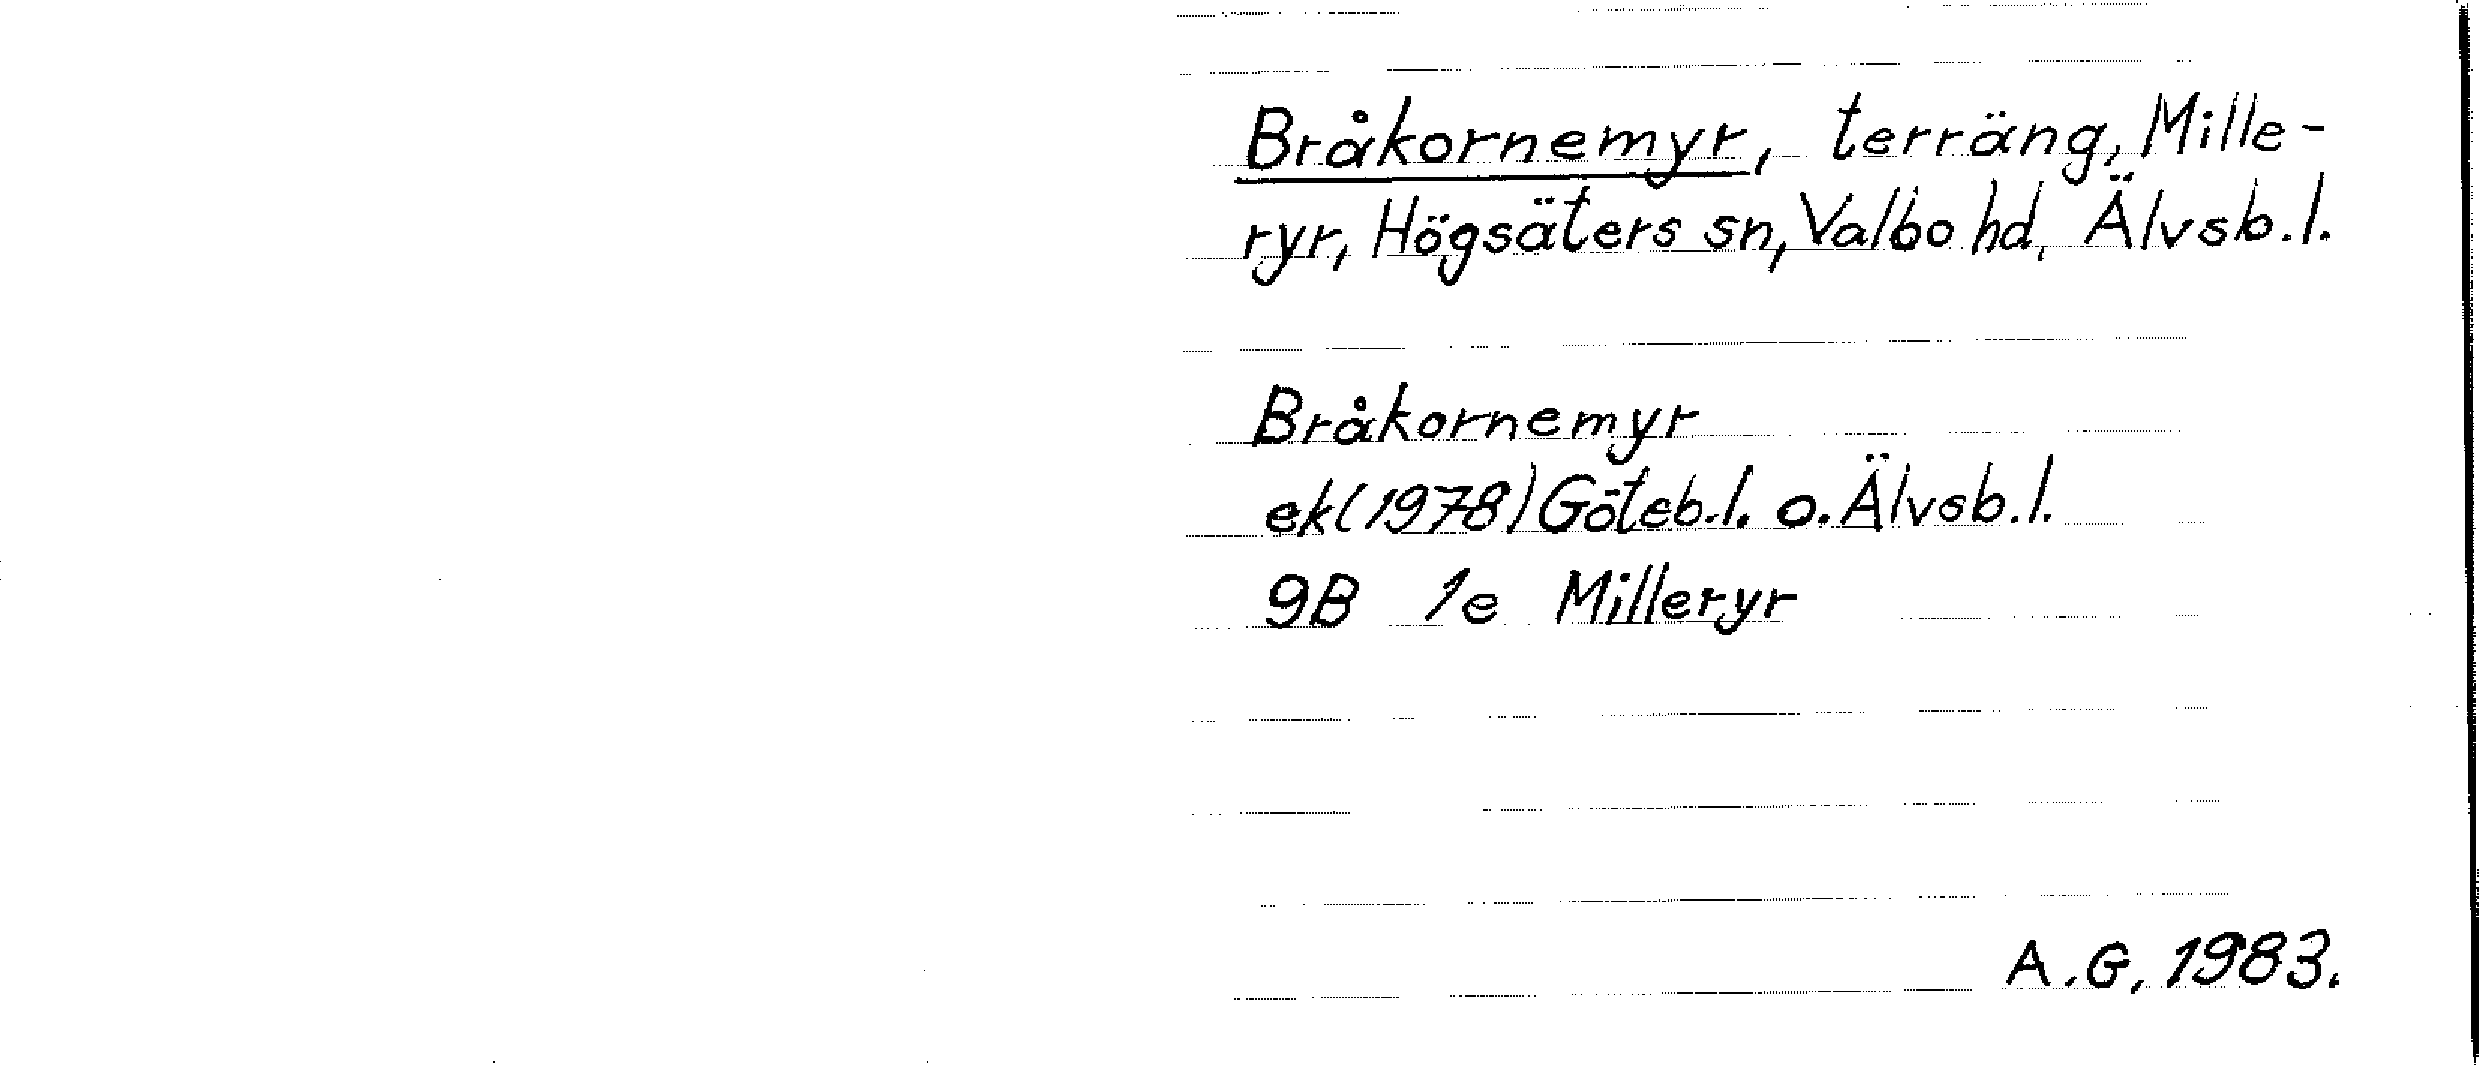 Bråkornemyr, terräng, Mille-
ryr, Högsäters sn, Valbo hd, Älvsb.l.
Bråkornemyr
ek(1978) Göteb.l. o. Älvsb.l.
9B 1e Milleryr
A.G, 1983.